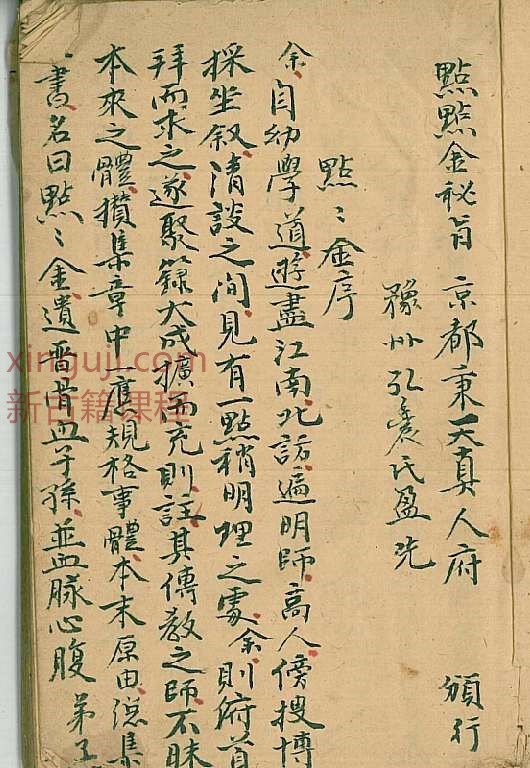 點點金秘旨 京都秉天真人府 頒行
豫州弘農氏盈先
點〻金序
余自幼學道遊盡江南北訪遍明師高人傍搜博
採坐叙清談之间見有一點稍明理之處余則俯首
拜而求之遂聚籙大成擴而充則註其傳教之師不昧
本來之體攢集章中一應規格事體本末原由總集
書名曰點〻金遺晋骨血子孫並血脉心腹 弟子
xinguji.com
新古籍课程